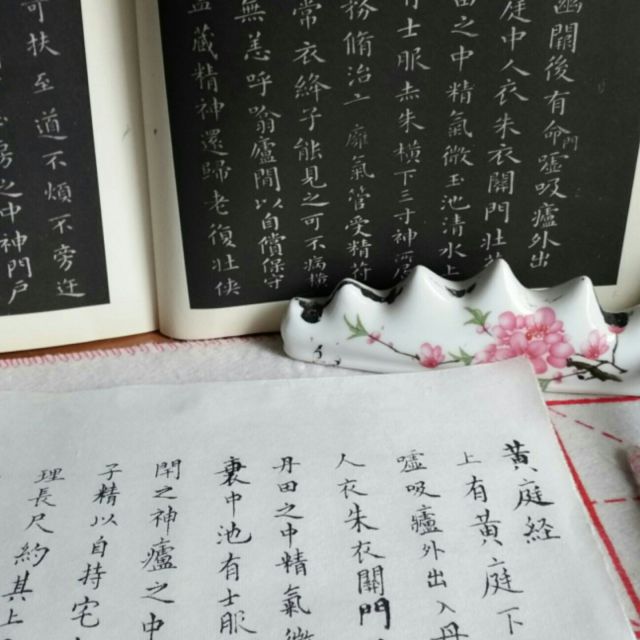 關後有命門噓吸廬外出
庭中人衣朱衣關門壯
田之中精氣微玉池清水上
有士服赤朱橫下三寸神所
務脩治 氣管受精符
常衣絳子能見之可不病
無恙呼翁廬間以自償保守
藏精神還歸老復壯俠
可扶至道不煩不旁迕
房之中神門戶
黃庭経
上有黃庭下
噓吸廬外出入丹
人衣朱衣關門
丹田之中精氣微
衷中池有士服
閒之神廬之中
子精以自持宅
理長尺約其上